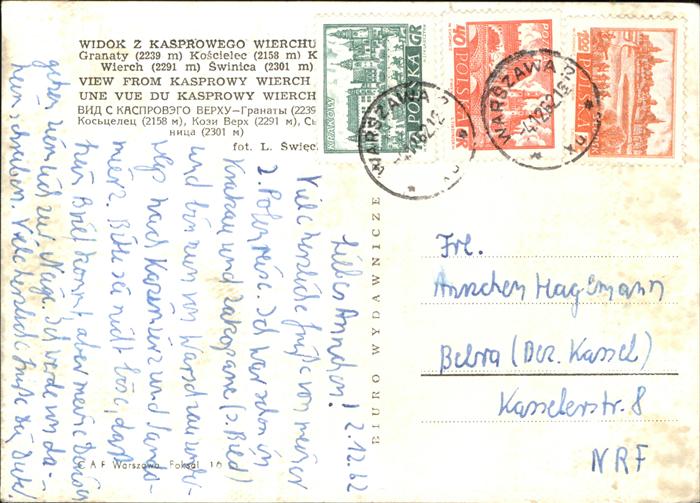 WIDOK Z KASPROWEGO WIERCHU
Granaty (2239 m) Kościelec (2158 m) K
Wierch (2291 m) Świnica (2301 m
VIEW FROM KASPROWY WIERCH
UNE VUE DU KASPROWY WIERCH
ВИД С КАСПРОВЭГО ВЕРХУ—Гранаты (2239
Косьцелец (2158 м), Кози Верх (2291 м), Сь
ница (2301 м)
fot. L. Święc
KRAKÓW
POLSKA GR
40 POLSKA
POLSKA
WARSZAWA
4.12.62
WARSZAWA
-4.12.62.12
BIURO WYDAWNICZE
C A F Warszawa, Foksal 16
2.12.62
Liebes Ännchen!
Viele herzliche Grüße von meiner
2. Polenreise. Ich war schon in
Krakau und Zakopane (s. Bild)
und bin nun von Warschau
nach Kazimierz und
Bitte sei nicht böse, daß
kein Brief kommt, aber meine
gehen ziemlich zur Neige. Ich werde von da-
heim schreiben. Viele herzliche Grüße
Frl.
Ännchen Hagemann
Bebra (Bez. Kassel)
Kasselerstr. 8
NRF